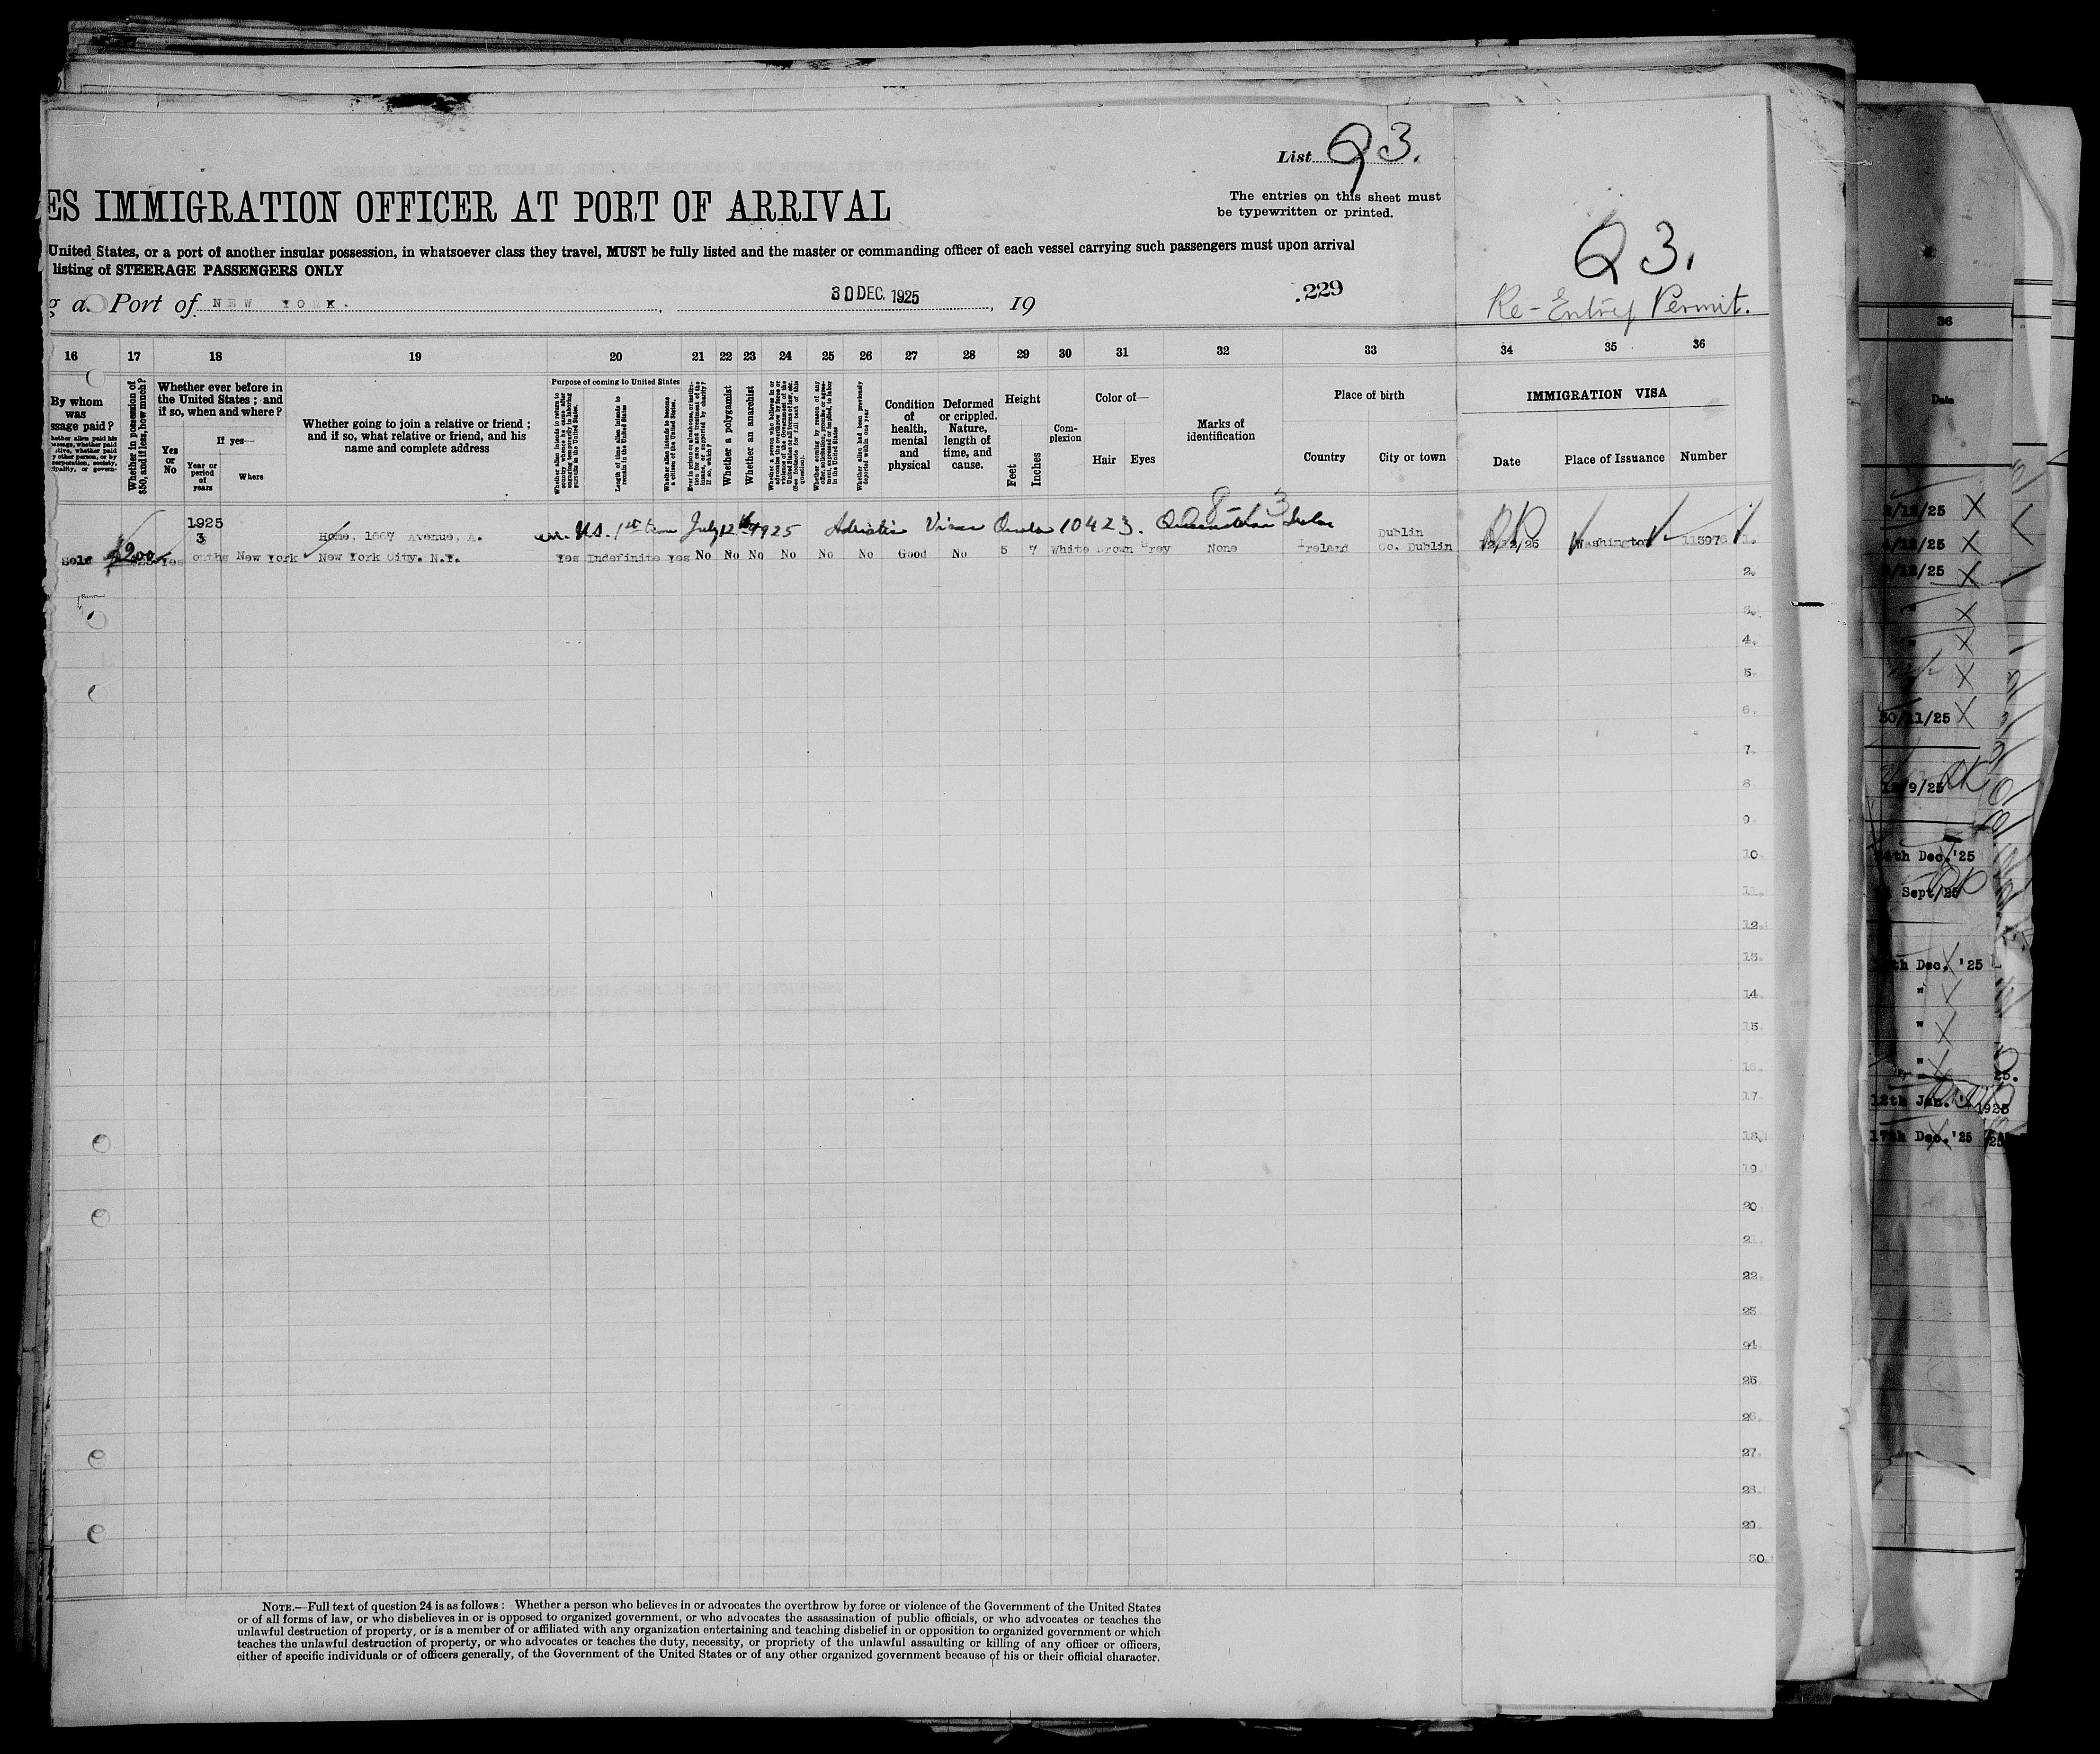 List Q3.
ES IMMIGRATION OFFICER AT PORT OF ARRIVAL
The entries on this sheet must
be typewritten or printed.
United States, or a port of another insular possession, in whatsoever class they travel, MUST be fully listed and the master or commanding officer of each vessel carrying such passengers must upon arrival
listing of STEERAGE PASSENGERS ONLY
Q3.
Re-Entry Permit.
g a Port of NEW YORK. , 30 DEC. 1925 , 19
.229
16 17 18 19 20 21 22 23 24 25 26 27 28 29 30 31 32 33 34 35 36
By whom
was
ssage paid?
Whether in possession of
$50, and if less, how much?
Whether ever before in
the United States; and
if so, when and where?
Yes
or
No
If yes—
Year or
period
of
years
Where
Whether going to join a relative or friend;
and if so, what relative or friend, and his
name and complete address
Purpose of coming to United States
Length of time alien intends to
remain in the United States
Whether alien intends to become
a citizen of the United States.
Whether a polygamist
Whether an anarchist
Condition
of
health,
mental
and
physical
Deformed
or crippled.
Nature,
length of
time, and
cause.
Height
Feet
Inches
Com-
plexion
Color of—
Hair Eyes
Marks of
identification
Place of birth
Country City or town
IMMIGRATION VISA
Date Place of Issuance Number
1925
3
Home, 1667 Avenue, A.
arr. U.S. 1st time July 12th 1925 Adriatic Visa 10423. Queenstown
Dublin
Self 200 Yes onths New York New York City. N.Y. Yes Indefinite Yes No No No No No No Good No 5 7 White Brown Grey None Ireland Co. Dublin Washington 1.
2.
3.
4.
5.
6.
7.
8.
9.
10.
11.
12.
13.
14.
15.
16.
17.
18.
19.
20.
21.
22.
23.
24.
25.
26.
27.
28.
29.
30.
NOTE.—Full text of question 24 is as follows: Whether a person who believes in or advocates the overthrow by force or violence of the Government of the United States
or of all forms of law, or who disbelieves in or is opposed to organized government, or who advocates the assassination of public officials, or who advocates or teaches the
unlawful destruction of property, or is a member of or affiliated with any organization entertaining and teaching disbelief in or opposition to organized government or which
teaches the unlawful destruction of property, or who advocates or teaches the duty, necessity, or propriety of the unlawful assaulting or killing of any officer or officers,
either of specific individuals or of officers generally, of the Government of the United States or of any other organized government because of his or their official character.
36
Date
/12/25
/12/25
/12/25
"
"
30/11/25
/9/25
th Dec. '25
Sept/25
th Dec. '25
"
"
"
25.
12th Jan. 1925
17th Dec. '25